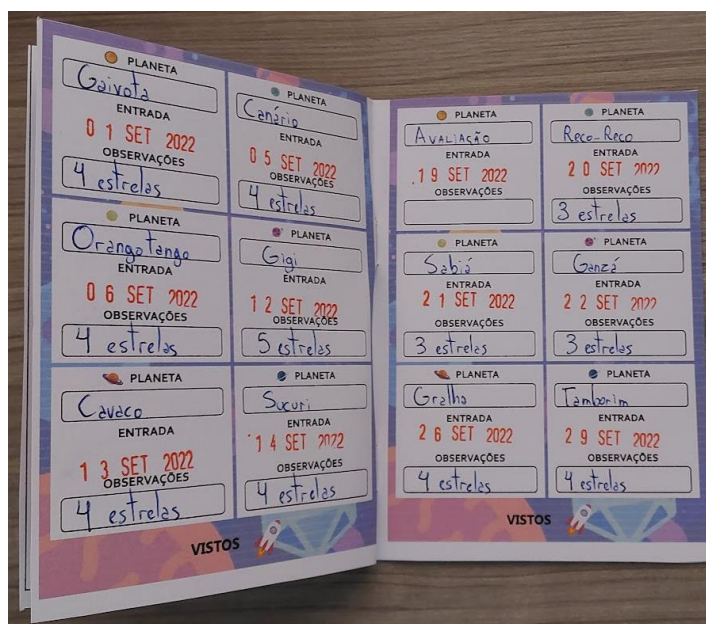 PLANETA
Gaivota
ENTRADA
0 1 SET 2022
OBSERVAÇÕES
4 estrelas
PLANETA
Canário
ENTRADA
0 5 SET 2022
OBSERVAÇÕES
4 estrelas
PLANETA
Orangotango
ENTRADA
0 6 SET 2022
OBSERVAÇÕES
4 estrelas
PLANETA
Gigi
ENTRADA
1 2 SET 2022
OBSERVAÇÕES
5 estrelas
PLANETA
Cavaco
ENTRADA
1 3 SET 2022
OBSERVAÇÕES
4 estrelas
PLANETA
Sucuri
ENTRADA
1 4 SET 2022
OBSERVAÇÕES
4 estrelas
VISTOS
PLANETA
AVALIAÇÃO
ENTRADA
1 9 SET 2022
OBSERVAÇÕES
PLANETA
Reco-Reco
ENTRADA
2 0 SET 2022
OBSERVAÇÕES
3 estrelas
PLANETA
Sabiá
ENTRADA
2 1 SET 2022
OBSERVAÇÕES
3 estrelas
PLANETA
Ganzá
ENTRADA
2 2 SET 2022
OBSERVAÇÕES
3 estrelas
PLANETA
Gralha
ENTRADA
2 6 SET 2022
OBSERVAÇÕES
4 estrelas
PLANETA
Tamborim
ENTRADA
2 9 SET 2022
OBSERVAÇÕES
4 estrelas
VISTOS